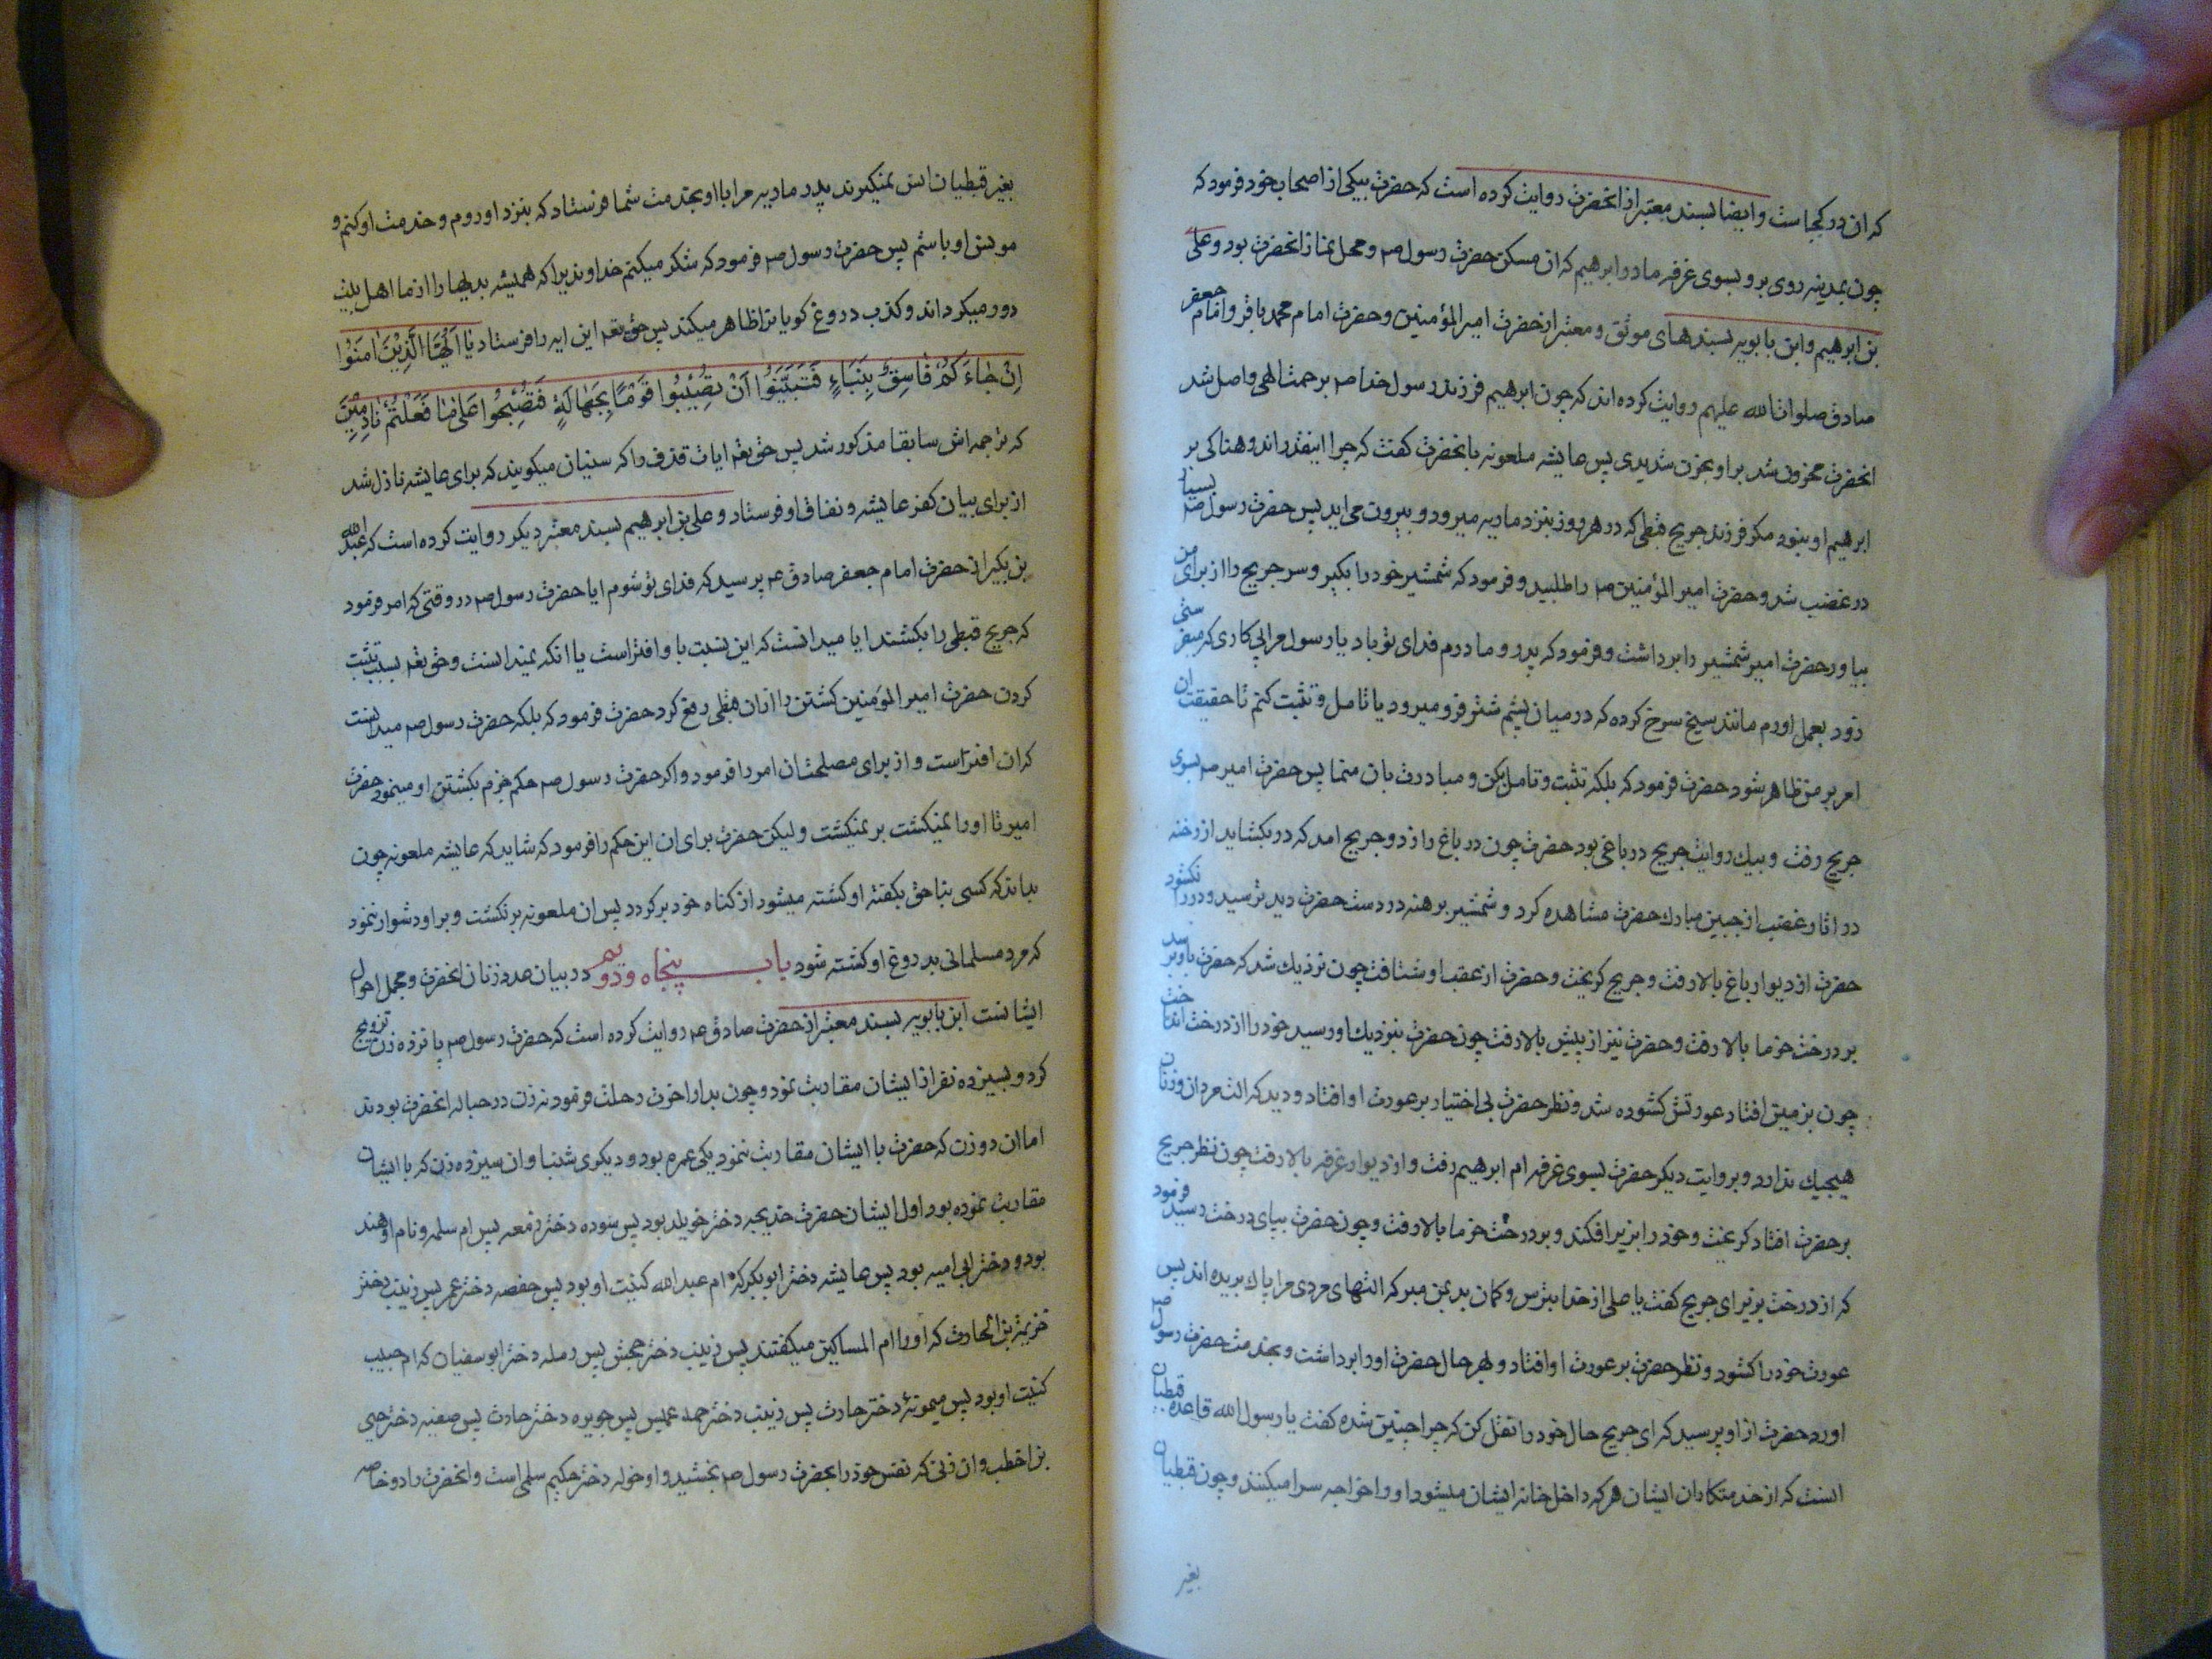 که ان در کجاست وایضا بسند معتبر از انحضرت روایت کرده است که حضرت بیکی از اصحاب خود فرمود که
چون بمدینه روی برو بسوی غرفه مادر ابرهیم که ان مسکن حضرت رسول صم ومحل نماز انحضرت بود وعلی
بن ابرهیم وابن بابویه بسندهای موثق ومعتبر از حضرت امیر المؤمنین وحضرت امام محمد باقر وامام جعفر
صادق صلوات الله علیهم روایت کرده اند که چون ابرهیم فرزند رسول خدا صم برحمت الهی واصل شد
انحضرت محزون شد بر او بحزن شدیدی پس عایشه ملعونه بانحضرت کفت که چرا اینقدر اندوهناکی بر
ابرهیم او نبود مکر فرزند جریح قبطی که در هر روز بنزد ماریه میرود وبیرون می اید پس حضرت رسول صم بسیار
در غضب شد وحضرت امیر المؤمنین صم را طلبید وفرمود که شمشیر خود را بکیر وسر جریح را از برای من
بیاور حضرت امیر شمشیر را برداشت وفرمود که پدر ومادرم فدای تو باد یا رسول مرا پی کاری که میفرستی
زود بعمل اورم مانند سیخ سرخ کرده که در میان پشم شتر فرو میرود یا تامل وتثبت کنم تا حقیقت ان
امر بر من ظاهر شود حضرت فرمود که بلکه تثبت وتامل بکن ومبادرت بان منما پس حضرت امیر صم بسوی
جریح رفت وبیک روایت جریح در باغی بود حضرت چون در باغ را زد وجریح امد که در بکشاید از رخنه
در اثار غضب از جبین مبارک حضرت مشاهده کرد وشمشیر برهنه در دست حضرت دید ترسید ودر را نکشود
حضرت از دیوار باغ بالا رفت وجریح کریخت وحضرت از عقب او شتافت چون نزدیک شد که حضرت باو برسد
بر درخت خرما بالا رفت وحضرت نیز از پیش بالا رفت چون حضرت بنزدیک او رسید خود را از درخت انداخت
چون بزمین افتاد عورتش کشوده شد ونظر حضرت بی اختیار بر عورت او افتاد ودید که الت مردان وزنان
هیچیک ندارد وبروایت دیکر حضرت بسوی غرفه ام ابرهیم رفت واز دیوار غرفه بالا رفت چون نظر جریح
بر حضرت افتاد کریخت وخود را بزیر افکند وبر درخت خرما بالا رفت وچون حضرت بپای درخت رسید فرمود
که از درخت بزیر ای جریح کفت یا علی از خدا بترس وکمان بد بمن مبر که التهای مردی مرا پاک بریده اند پس
عورت خود را کشود ونظر حضرت بر عورت او افتاد وبهر حال حضرت او را برداشت وبخدمت حضرت رسول صم
اورد حضرت از او پرسید که ای جریح حال خود را نقل کن که چرا چنین شده کفت یا رسول الله قاعده قبطیان
انست که از خدمتکاران ایشان هر که داخل خانه ایشان میشود او را خواجه سرا میکنند وچون قبطیان
بغیر
بغیر قبطیان انس نمیکیرند پدر ماریه مرا با او بخدمت شما فرستاد که بنزد او روم وخدمت او کنم و
مونس او باشم پس حضرت رسول صم فرمود که شکر میکنم خداوندیرا که همیشه بدیها را از ما اهل بیت
دور میکرداند وکذب دروغ کویانرا ظاهر میکند پس حق تعه این ایه را فرستاد یا ایها الذین امنوا
اِنْ جٰاءَکُمْ فٰاسِقٌ بِنَبَاءٍ فَتَبَیَّنُوا اَنْ تُصِیْبُوا قَوْمًا بِجَهٰالَةٍ فَتُصْبِحُوا عَلٰی مٰا فَعَلْتُمْ نٰادِمِیْنَ
که ترجمه اش سابقا مذکور شد پس حق تعه ایات قذف را که سنیان میکویند که برای عایشه نازل شد
از برای بیان کفر عایشه ونفاق او فرستاد وعلی بن ابرهیم بسند معتبر دیکر روایت کرده است که عبد الله
بن بکیر از حضرت امام جعفر صادق عم پرسید که فدای تو شوم ایا حضرت رسول صم در وقتی که امر فرمود
که جریح قبطی را بکشند ایا میدانست که این نسبت باو افتراست یا انکه نمیدانست وحق تعه بسبب تثبت
کردن حضرت امیر المؤمنین کشتن را از ان قبطی رفع کرد حضرت فرمود که بلکه حضرت رسول صم میدانست
کران افتراست واز برای مصلحت ان امر را فرمود واکر حضرت رسول صم حکم جزم بکشتن او مینمود حضرت
امیر تا او را نمیکشت بر نمیکشت ولیکن حضرت برای ان این حکم را فرمود که شاید که عایشه ملعونه چون
بداند که کسی بناحق بکفته او کشته میشود از کناه خود بر کردد پس ان ملعونه بر نکشت وبر او دشوار ننمود
که مرد مسلمانی بدروغ او کشته شود باب پنجاه ودویم در بیان عدد زنان انحضرت ومجمل احوال
ایشانست ابن بابویه بسند معتبر از حضرت صادق عم روایت کرده است که حضرت رسول صم پانزده زن تزویج
کرد وبسیزده نفر از ایشان مقاربت نمود وچون بدار اخرت رحلت فرمود نه زن در حباله انحضرت بودند
اما ان دو زن که حضرت با ایشان مقاربت ننمود یکی عمره بود ودیکری شنبا وان سیزده زن که با ایشان
مقاربت نموده بود اول ایشان حضرت خدیجه دختر خویلد بود پس سوده دختر زمعه پس ام سلمه ونام او هند
بود ودختر ابی امیه بود پس عایشه دختر ابوبکر که ام عبد الله کنیت او بود پس حفصه دختر عمر پس زینب دختر
خزیمة بن الحارث که او را ام المساکین میکفتند پس زینب دختر جحش پس رمله دختر ابو سفیان که ام حبیب
کنیت او بود پس میمونهٔ دختر حارث پس زینب دختر عمیس پس جویره دختر حارث پس صفیه دختر حیی
بن اخطب وان زنی که نفس خود را بحضرت رسول صم بخشید واو خوله دختر حکیم سلمی است وانحضرت را دو خاصه